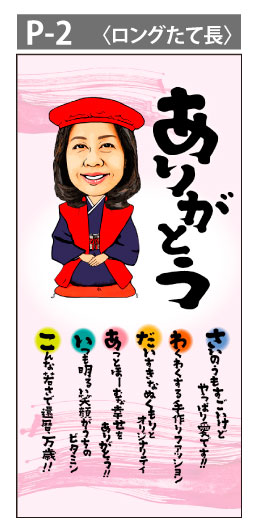 P-2 〈ロングたて長〉
ありがとう
さいのうもすごいけど
やっぱり愛です!!
わくわくする手作りファッション
だいすきなぬくもりと
オリジナリティ
あっとほーむな幸せを
ありがとう!!
いつも明るい笑顔がうちの
ビタミン
こんな若さで還暦、万歳!!